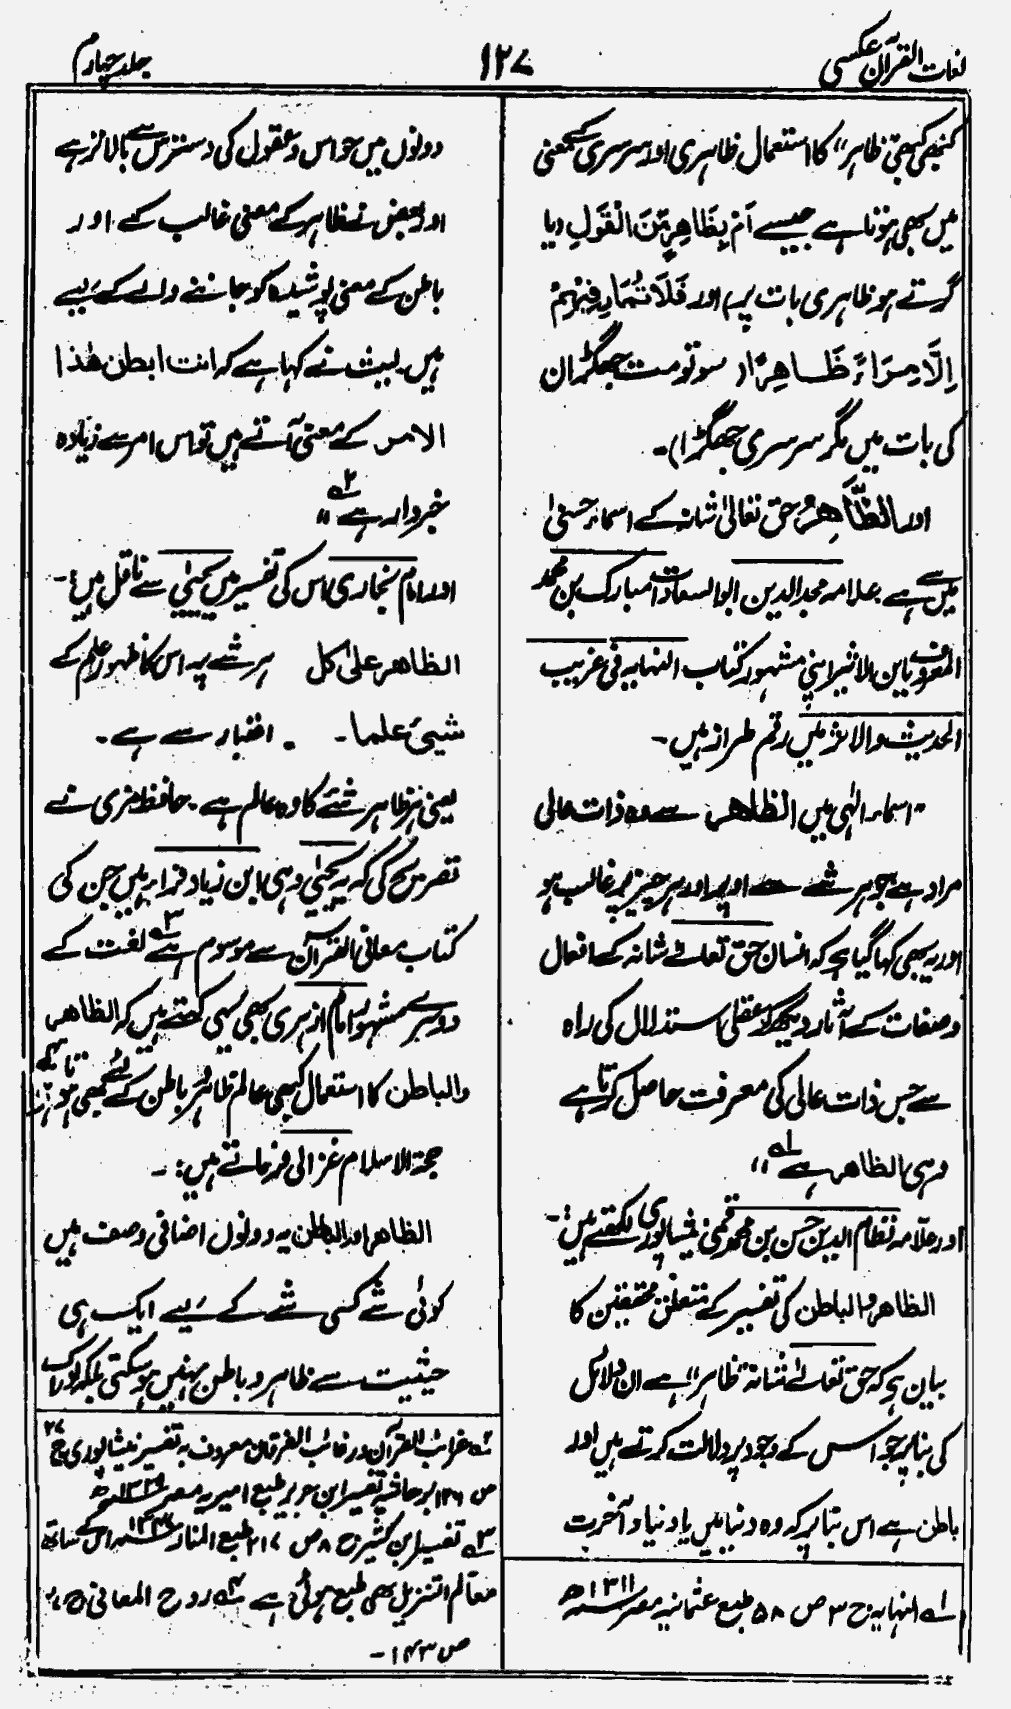 لغات القرآن عکسی
۱۲۷
جلد چہارم
کبھی کبھی "ظاہر" کا استعمال ظاہری اور سرسری کے معنی
میں بھی ہوتا ہے جیسے اَمْ بِظَاہِرٍ مِّنَ الْقَوْلِ (یا
کرتے ہو ظاہری بات پر) اور فَلَا تُمَارِ فِيْهِمْ
اِلَّا مِرَاءً ظَاهِرًا (سو تو مت جھگڑ ان
کی بات میں مگر سرسری جھگڑا)۔
اور الظَّاهِرُ حق تعالیٰ شانہ کے اسماء حسنیٰ
میں سے ہے علامہ مجد الدین ابو السعادات مبارک بن محمد
المعروف بابن الاثیر اپنی مشہور کتاب النہایہ فی غریب
الحدیث والاثر میں رقم طراز ہیں۔
"اسماء الٰہی میں الظاهر سے وہ ذات عالی
مراد ہے جو ہر شے سے اوپر اور ہر چیز پر غالب ہو
اور یہ بھی کہا گیا ہے کہ انسان حق تعالےٰ شانہ کے افعال
و صفات کے آثار دیکھ کر عقلی استدلال کی راہ
سے جس ذات عالی کی معرفت حاصل کرتا ہے
وہی الظاهر ہے" لہ
اور علامہ نظام الدین حسن بن محمد قمی نیشاپوری لکھتے ہیں:۔
الظاهر والباطن کی تفسیر کے متعلق محققین کا
بیان ہے کہ حق تعالےٰ شانہ "ظاہر" ہے ان دلائل
کی بنا پر جو اس کے وجود پر دلالت کرتے ہیں اور
باطن ہے اس بنا پر کہ وہ دنیا میں یا دنیا و آخرت
لہ النہایہ ج ۳ ص ۵۸ طبع عثمانیہ مصر سنہ ۱۳۱۱ھ
دونوں میں حواس و عقول کی دسترس سے بالاتر ہے
اور بعض نے ظاہر کے معنی غالب کے اور
باطن کے معنی پوشیدہ کو جاننے والے کے لیے
ہیں۔ لیث نے کہا ہے کہ انت ابطن هٰذا
الامر کے معنی آتے ہیں تو اس امر سے زیادہ
خبردار ہے" ۲ہ
اور امام بخاری اس کی تفسیر میں یحییٰ سے ناقل ہیں:۔
الظاهر علیٰ کل ہر شے پر اس کا ظہور علم کے
شیئ علما۔ اعتبار سے ہے۔
یعنی ہر ظاہر شئے کا وہ عالم ہے۔ حافظ مزی نے
تصریح کی کہ یہ یحییٰ وہی ابن زیاد فراء ہیں جن کی
کتاب معانی القرآن سے موسوم ہے ۳ہ لغت کے
دوسرے مشہور امام ازہری بھی یہی کہتے ہیں کہ الظاهر
والباطن کا استعمال کبھی عالم ظاہر و باطن کے لئے بھی ہوتا ہے ۴ہ
حجۃ الاسلام غزالی فرماتے ہیں:۔
الظاهر اور الباطن یہ دونوں اضافی وصف ہیں
کوئی شے کسی شے کے لیے ایک ہی
حیثیت سے ظاہر و باطن نہیں ہو سکتی بلکہ ادراک
لہ غرائب القرآن و رغائب الفرقان معروف بہ تفسیر نیشاپوری ج ۲۷
ص ۱۳۶ بر حاشیہ تفسیر ابن جریر طبع امیریہ مصر سنہ ۱۳۲۹ھ
۳ہ تفسیر ابن کثیر ج ۸ ص ۲۱۷ طبع المنار سنہ ۱۳۴۷ اس کے ساتھ
معالم التنزیل بھی طبع ہوئی ہے ۴ہ روح المعانی ج ۲۷
ص ۱۴۳۔